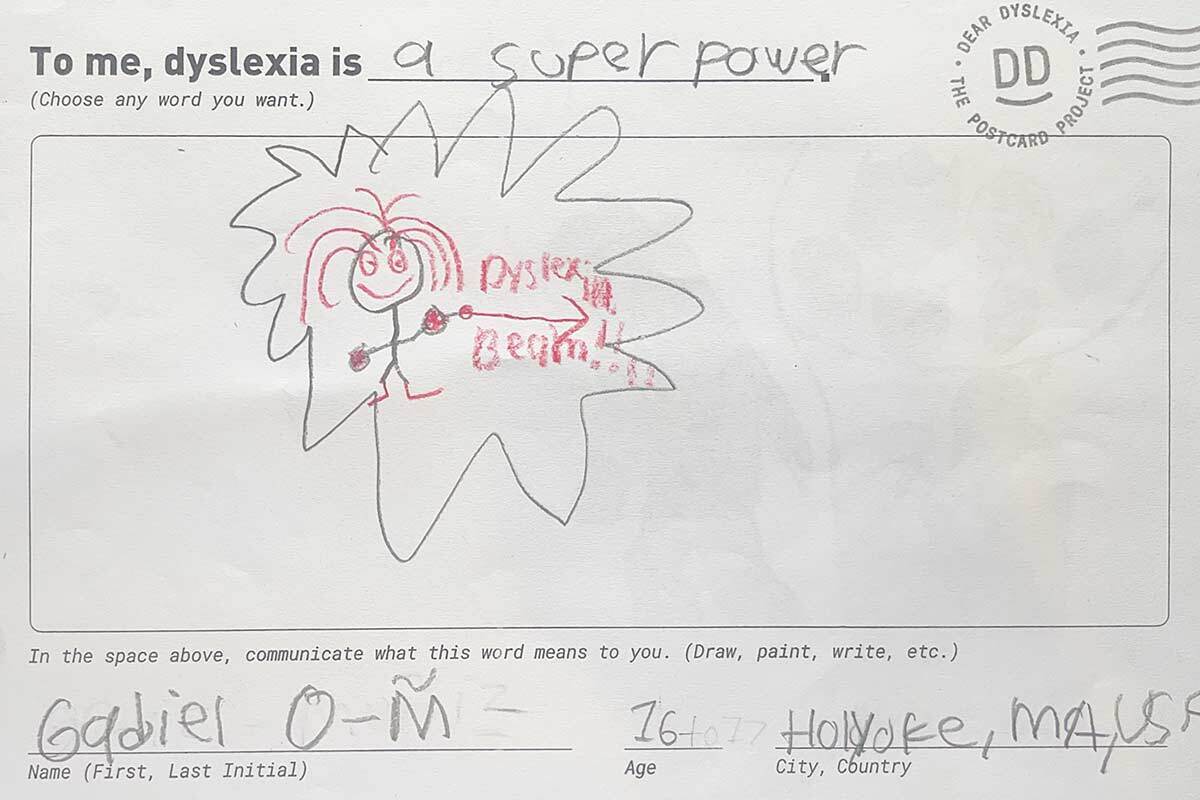 To me, dyslexia is a super power.
(Choose any word you want.)
· DEAR DYSLEXIA · THE POSTCARD PROJECT
DD
Dyslexi
Beam!!
In the space above, communicate what this word means to you. (Draw, paint, write, etc.)
Gabiel O-Ñ 16 Holyoke, MA, USA
Name (First, Last Initial) Age City, Country